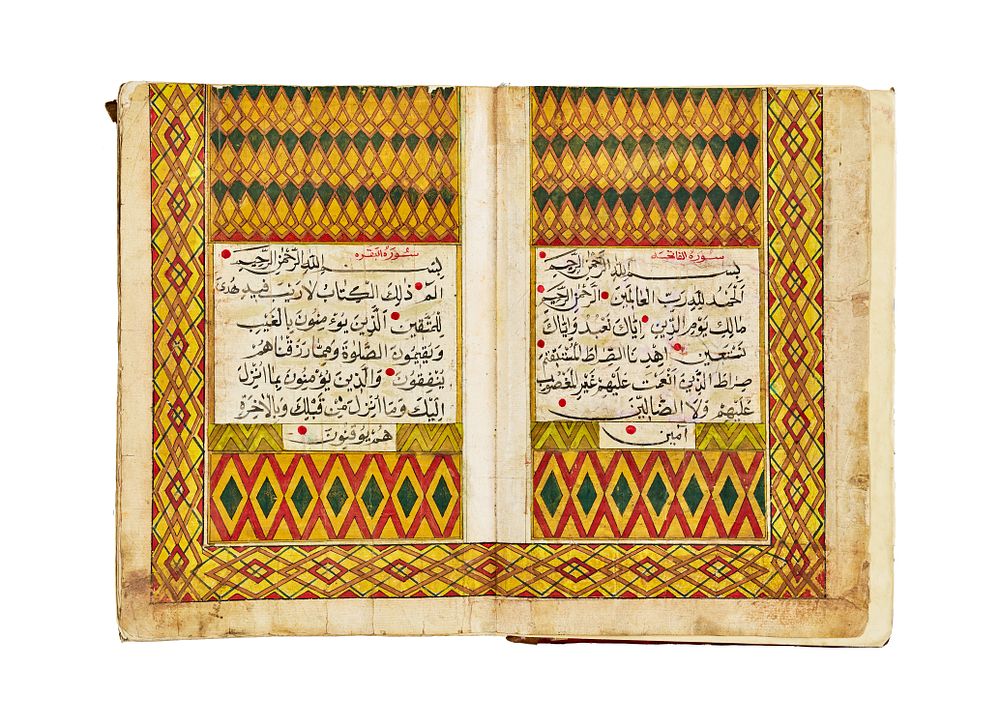 سورة الفاتحه
بِسْمِ اللهِ الرَّحْمٰنِ الرَّحِيمِ
اَلْحَمْدُ لِلّٰهِ رَبِّ الْعَالَمِينَ الرَّحْمٰنِ الرَّحِيمِ
مَالِكِ يَوْمِ الدِّينِ اِيَّاكَ نَعْبُدُ وَاِيَّاكَ
نَسْتَعِينُ اِهْدِنَا الصِّرَاطَ الْمُسْتَقِيمَ
صِرَاطَ الَّذِينَ اَنْعَمْتَ عَلَيْهِمْ غَيْرِ الْمَغْضُوبِ
عَلَيْهِمْ وَلَا الضَّالِّينَ
آمين
سورة البقره
بِسْمِ اللهِ الرَّحْمٰنِ الرَّحِيمِ
الٓمٓ ذٰلِكَ الْكِتَابُ لَا رَيْبَ فِيهِ هُدًى
لِلْمُتَّقِينَ الَّذِينَ يُؤْمِنُونَ بِالْغَيْبِ
وَيُقِيمُونَ الصَّلٰوةَ وَمِمَّا رَزَقْنَاهُمْ
يُنْفِقُونَ وَالَّذِينَ يُؤْمِنُونَ بِمَا اُنْزِلَ
اِلَيْكَ وَمَا اُنْزِلَ مِنْ قَبْلِكَ وَبِالْاٰخِرَةِ
هُمْ يُوقِنُونَ